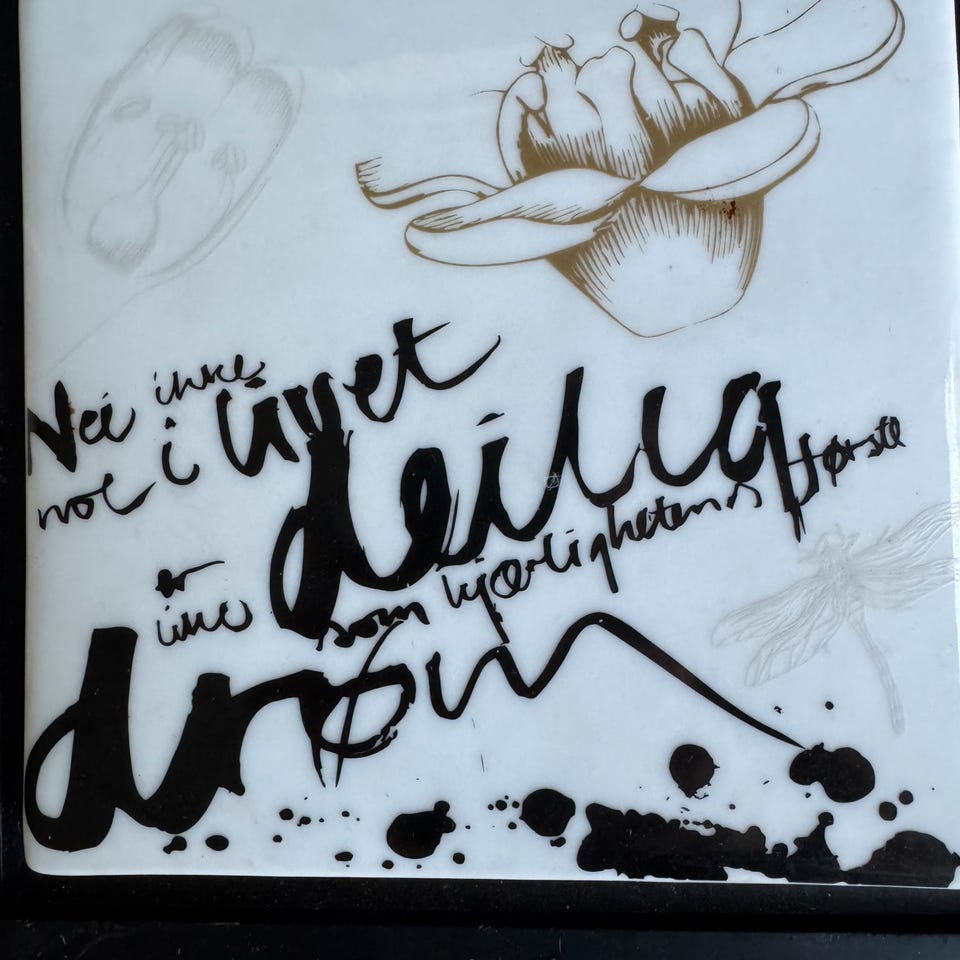 Nei ikke
noe i livet
er deilig
ikke som kjærlighetens første
drøm